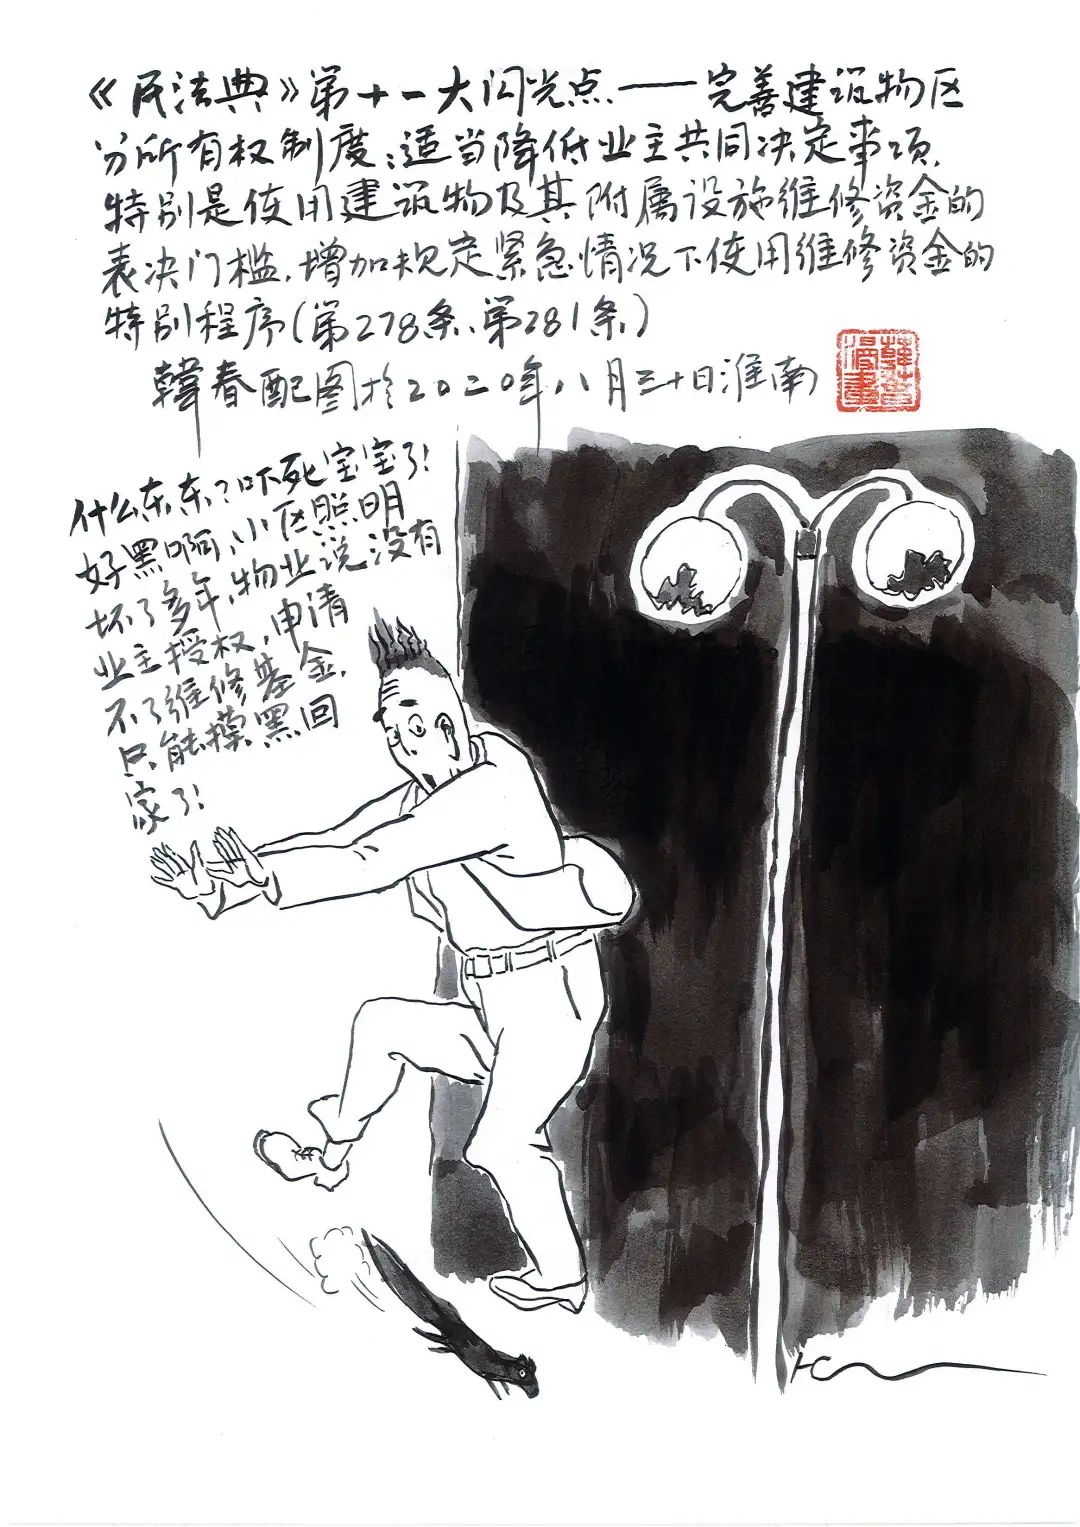 《民法典》第十一大闪光点——完善建筑物区
分所有权制度:适当降低业主共同决定事项,
特别是使用建筑物及其附属设施维修资金的
表决门槛,增加规定紧急情况下使用维修资金的
特别程序(第278条、第281条)
韓春配图於2020年八月三十日淮南
什么东东?吓死宝宝了!
好黑啊,小区照明
坏了多年,物业说没有
业主授权,申请
不了维修基金,
只能摸黑回
家了!
HC